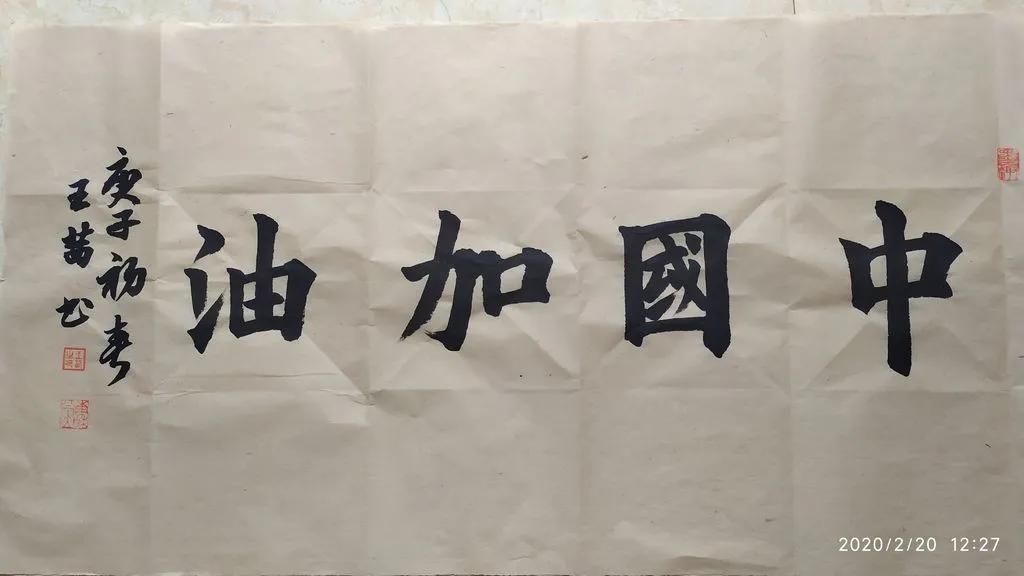 中國加油
庚子初春
王茜书
2020/2/20 12:27